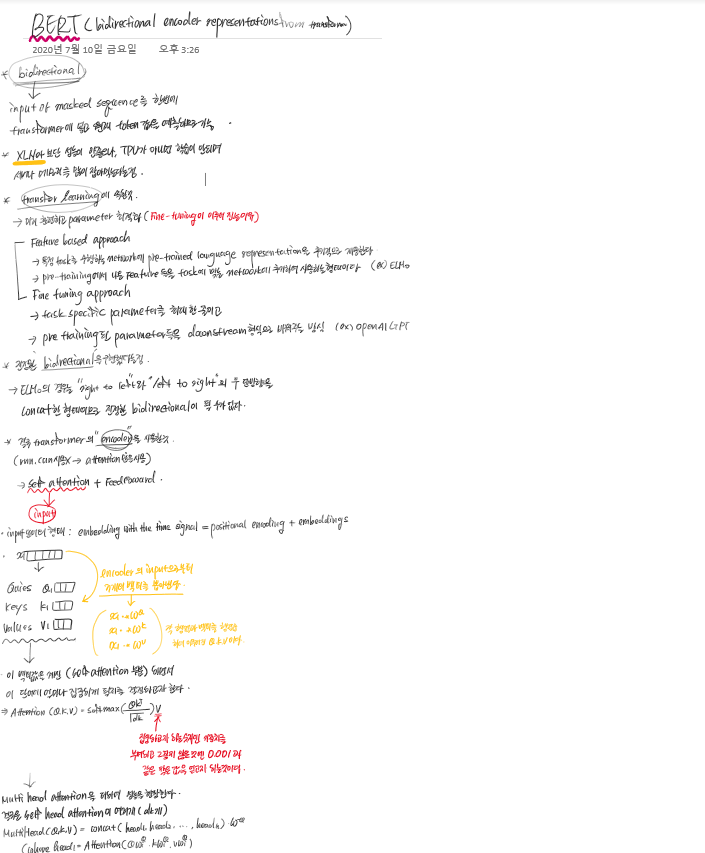 BERT ( bidirectional encoder representations from transformer)
2020년 7월 10일 금요일 오후 3:26
* bidirectional
input of masked sequence를 한번에
transformer에 넣고 원래 token값을 예측하므로 가능.
* XLNet 보단 성능이 안좋으나, TPU가 아니면 학습이 안되며
메모리를 많이 잡아먹는다는점.
* transfer learning에 속한것.
→ 미리 훈련하고 parameter 최적화 ( Fine-tuning이 이후에 진행)
Feature based approach
→ 특정 task를 수행하는 network에 pre-trained language representation을 추가적으로 제공한다
→ pre-training에서 나온 Feature 등을 task에 맞는 network에 추가하여 사용하는 형태이다 (ex) ELMo
Fine tuning approach
→ task specific parameter를 최대한 줄이고
→ pre training된 parameter들을 downstream 형식으로 바꿔주는 방식 (ex) OpenAI GPT
* 진정한 bidirectional을 구현했다는점.
→ ELMo의 경우는 "right to left"와 "left to right"의 두 단방향을
concat한 형태이므로 진정한 bidirectional이 될 수가 없다.
* 결국 transformer의 "encoder"을 사용한것.
(rnn.cnn사용X → attention만을 사용)
→ self attention + Feedforward.
input
· input 데이터 형태 : embedding with the time signal = positional encoding + embeddings
· x1
Quries Q1
keys K1
Values V1
encoder의 input으로부터
3개의 벡터를 뽑아낸다.
x1 · wQ
x1 · wK
x1 · wV
각 행렬과 벡터를 행렬곱
하여 Q.K.V이다
· 이 벡터값은 개별 (self attention 부분) 되면서
이 단어에 얼마나 집중하게 할지를 결정하고자 한다.
⇒ Attention (Q.K.V) = softmax( QKT / √dk ) V
집중하고자 하는 단어면 가중치를
부여하고 그렇지 않은것은 0.001과
같은 작은 값을 얻고자 하는것이다.
Multi head attention을 더하여 성능을 향상한다.
결국은 self head attention이 여러개 (dk개)
MultiHead (Q.K.V) = concat ( head1, head2, ..., headn) · WO
(where head1 = Attention(QWiQ · KWiK, VWiV)